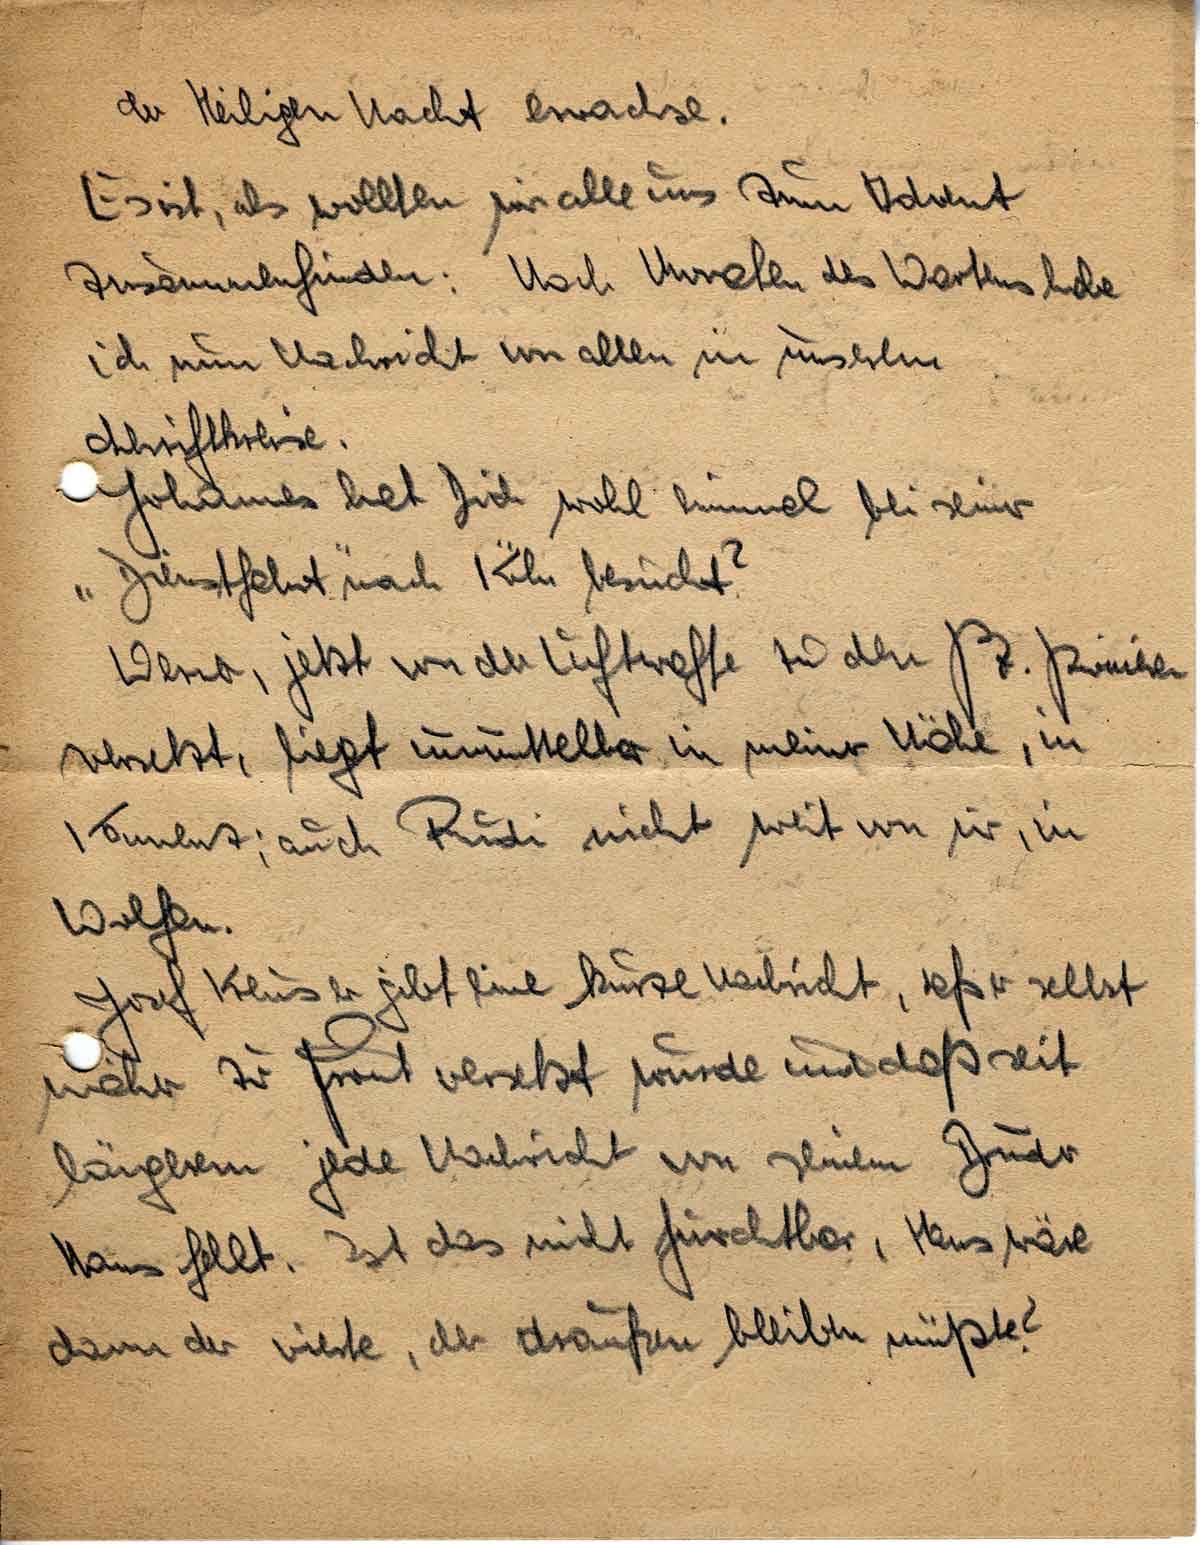 der Heiligen Nacht erwachse.
Es ist, als wollten wir alle uns zum Advent
zusammenfinden: Nach Monaten des Wartens habe
ich nun Nachricht von allen in unserem
Schriftkreise.
Johannes hat Dich wohl einmal bei seiner
„Dienstfahrt" nach Köln besucht?
jetzt von der Luftwaffe zu den Pz. Pionieren
versetzt, liegt unmittelbar in meiner Nähe, in
Kamenz; auch Rudi nicht weit von mir, in
Wolfen.
Josef gibt eine kurze Nachricht, daß er selbst
näher zur Front versetzt wurde und daß seit
längerem jede Nachricht von seinem Bruder
Hans fehlt. Ist das nicht furchtbar, Hans wäre
dann der vierte, der draußen bleiben müßte?